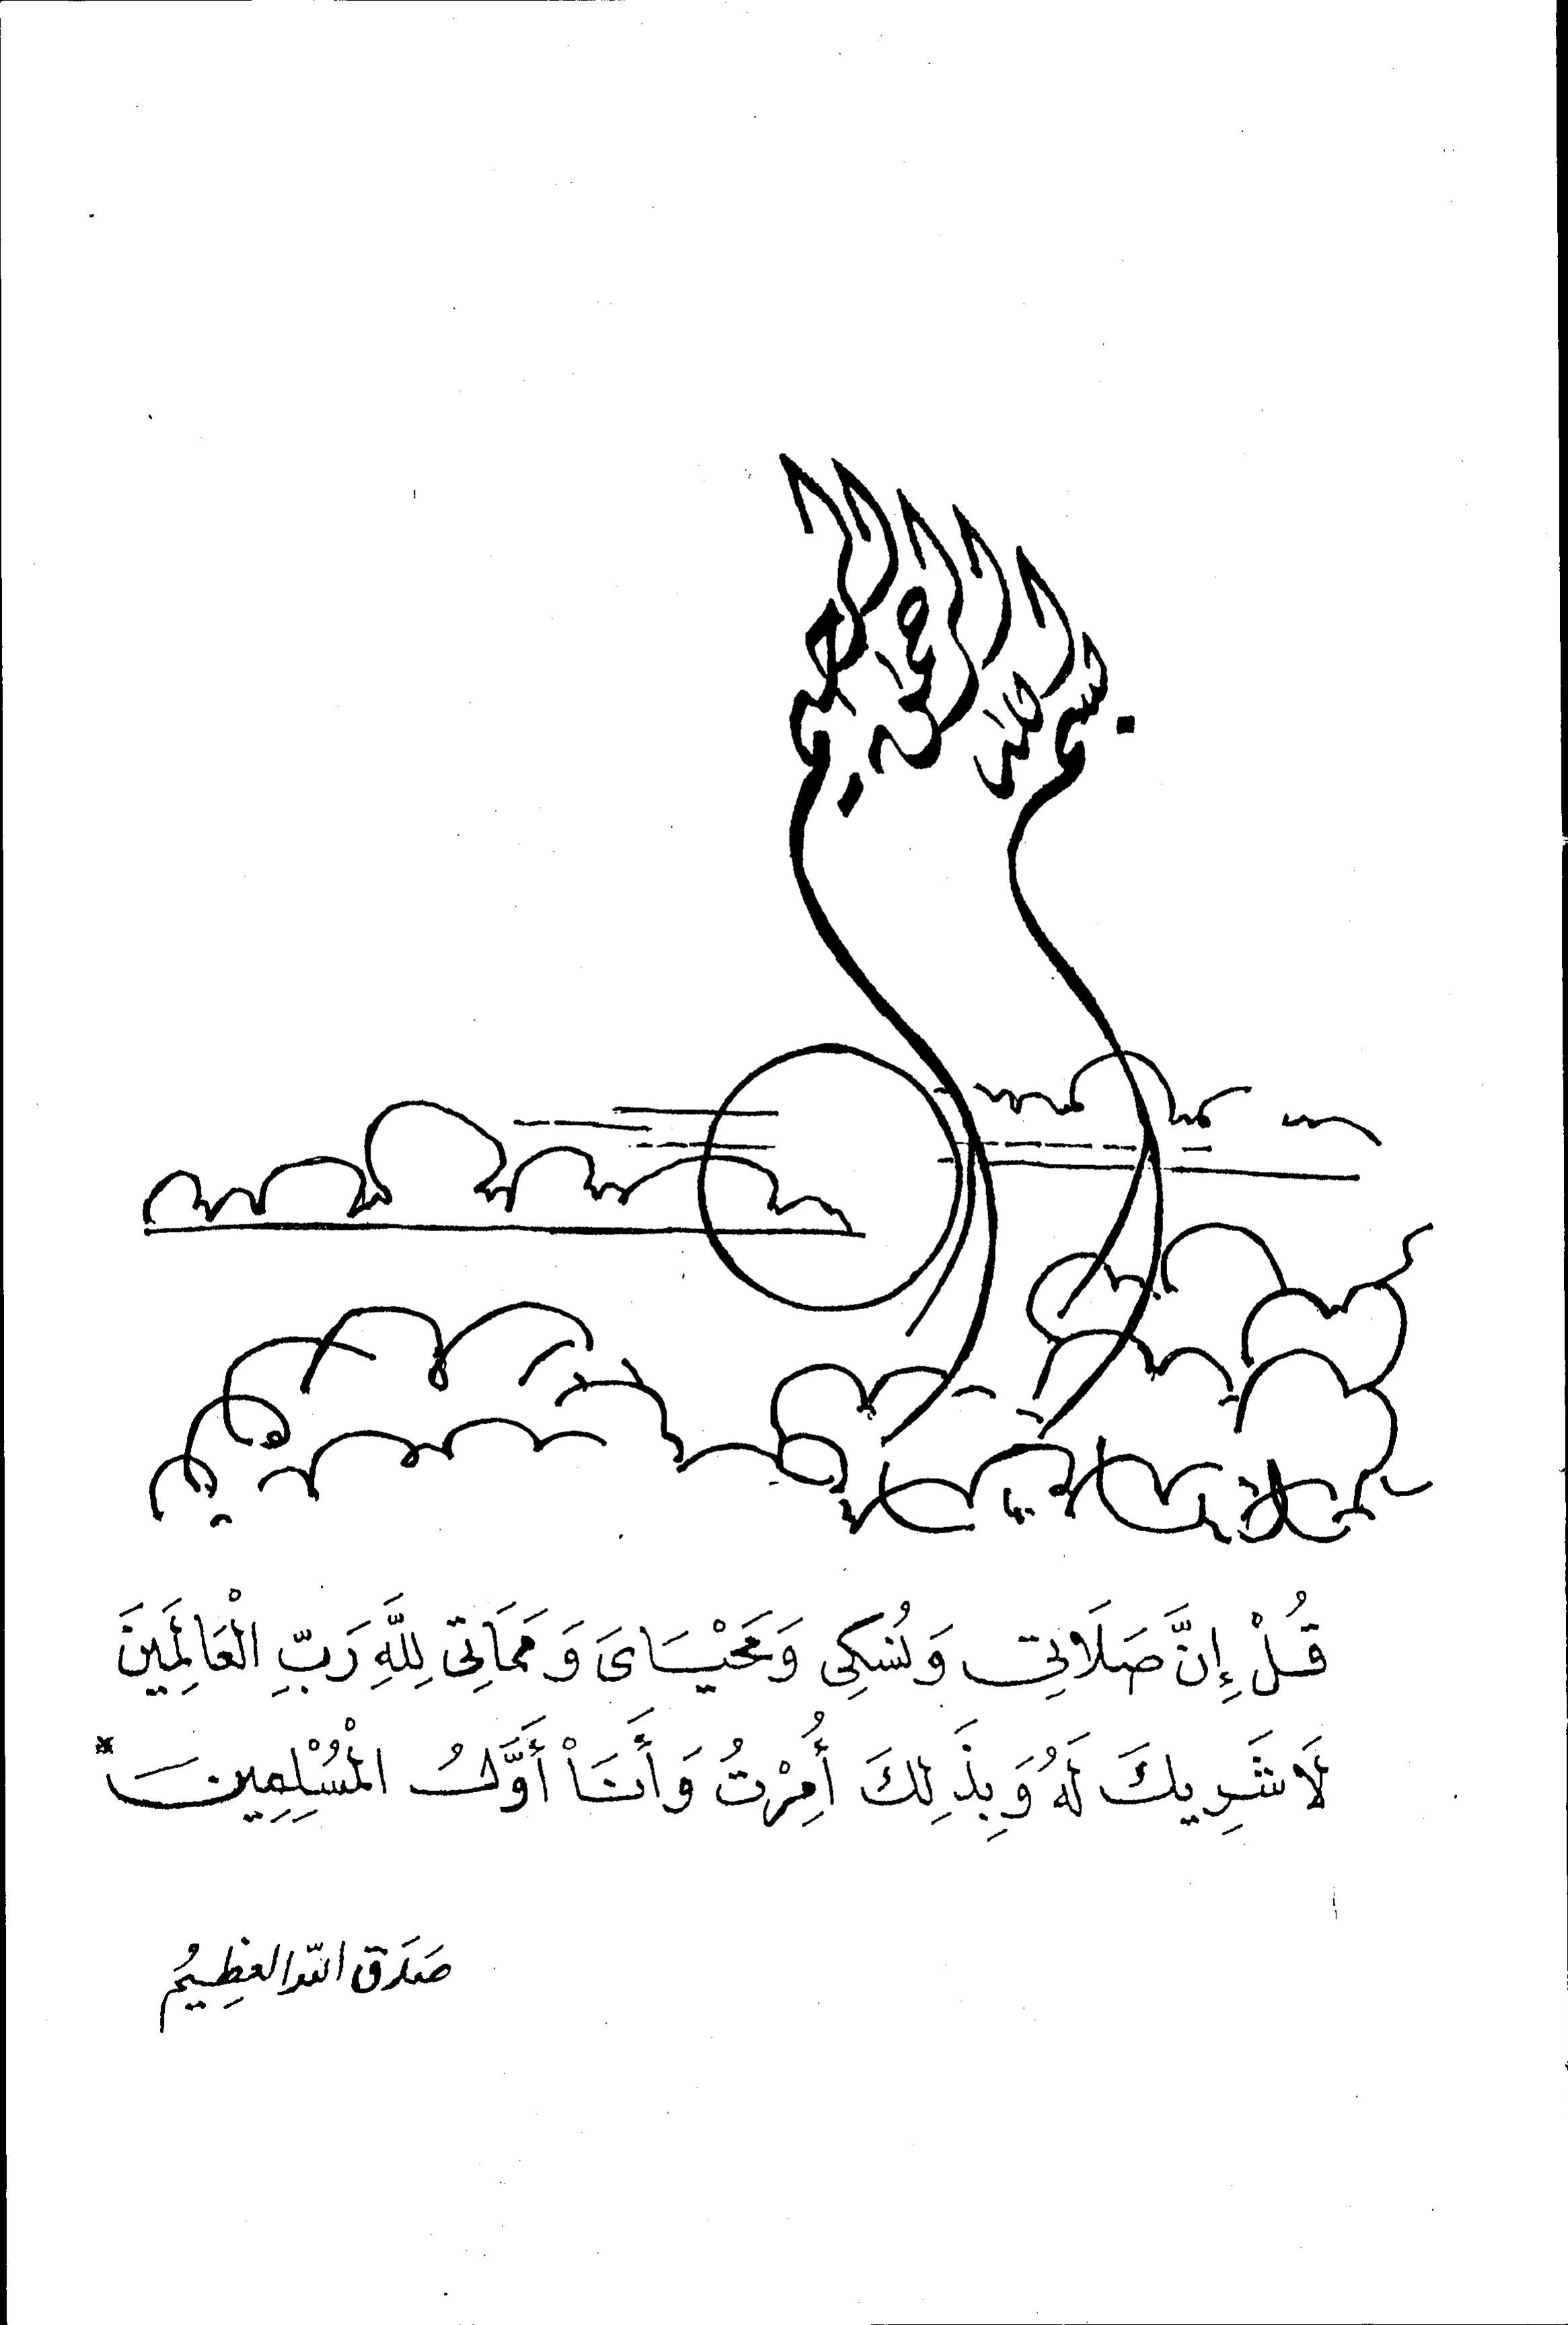 بسم الله الرحمن الرحيم
قُلْ إِنَّ صَلَاتِى وَنُسُكِى وَمَحْيَاىَ وَمَمَاتِى لِلَّهِ رَبِّ الْعَالَمِينَ
لَا شَرِيكَ لَهُ وَبِذَلِكَ أُمِرْتُ وَأَنَاْ أَوَّلُ الْمُسْلِمِينَ *
صَدَقَ اللّه العَظِيمُ